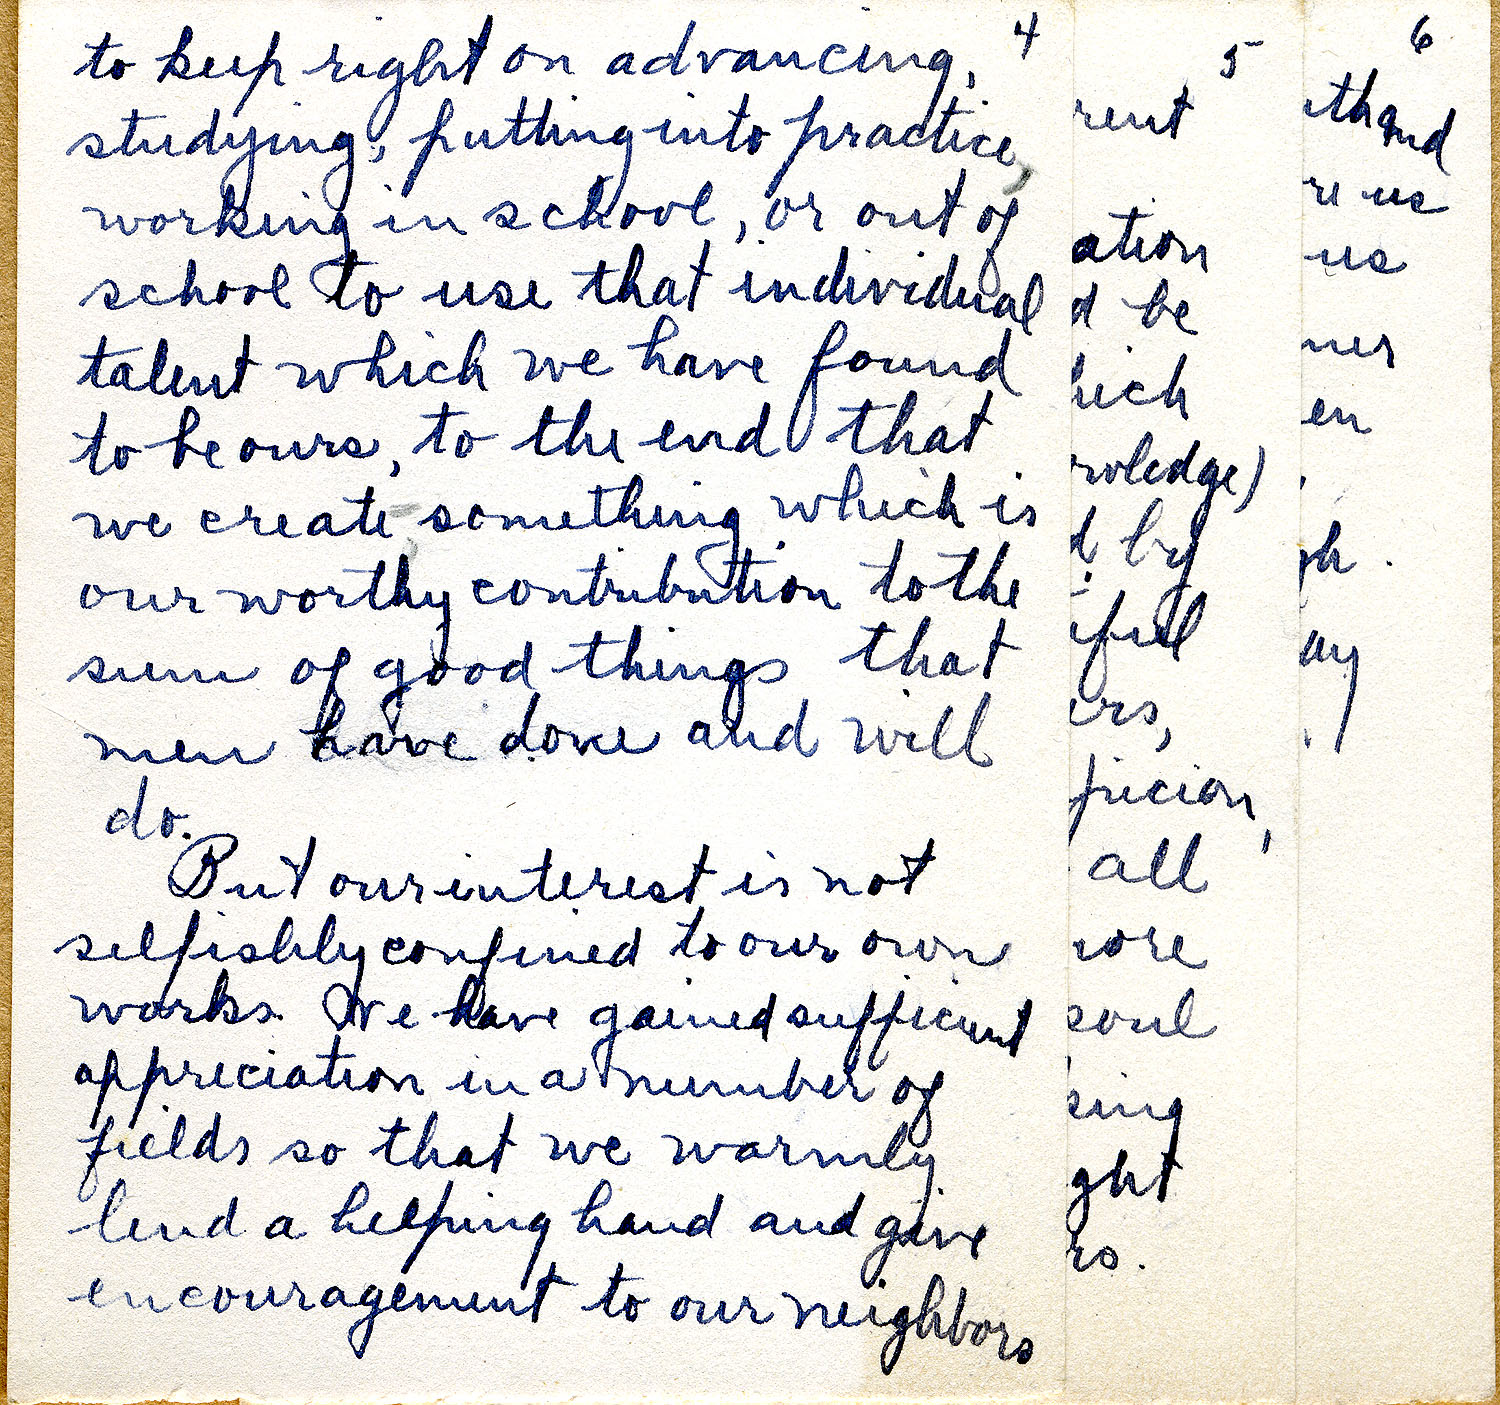 4
to keep right on advancing,
studying, putting into practice,
working in school, or out of
school to use that individual
talent which we have found
to be ours, to the end that
we create something which is
our worthy contribution to the
sum of good things that
men have done and will
do.
But our interest is not
selfishly confined to our own
works. We have gained sufficient
appreciation in a number of
fields so that we warmly
lend a helping hand and give
encouragement to our neighbors
5
rent
ation
d be
hich
wledge)
d by
iful
ers,
picion,
all
more
soul
sing
ght
rs.
6
and
re us
us
ner
en
gh.
ay